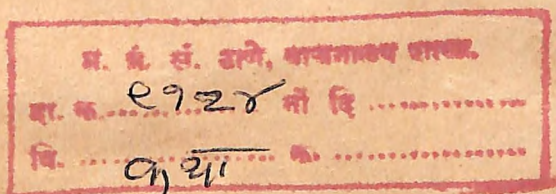 म. ग्रं. सं. ठाणे, वाचनालय शाखा.
दा. क. ९१२४ नों दि
वि. क.